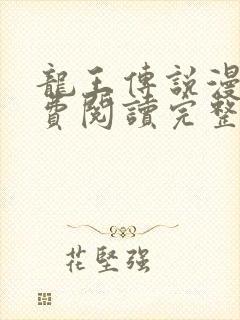 龍王傳說漫
費閱讀完整
花堅強